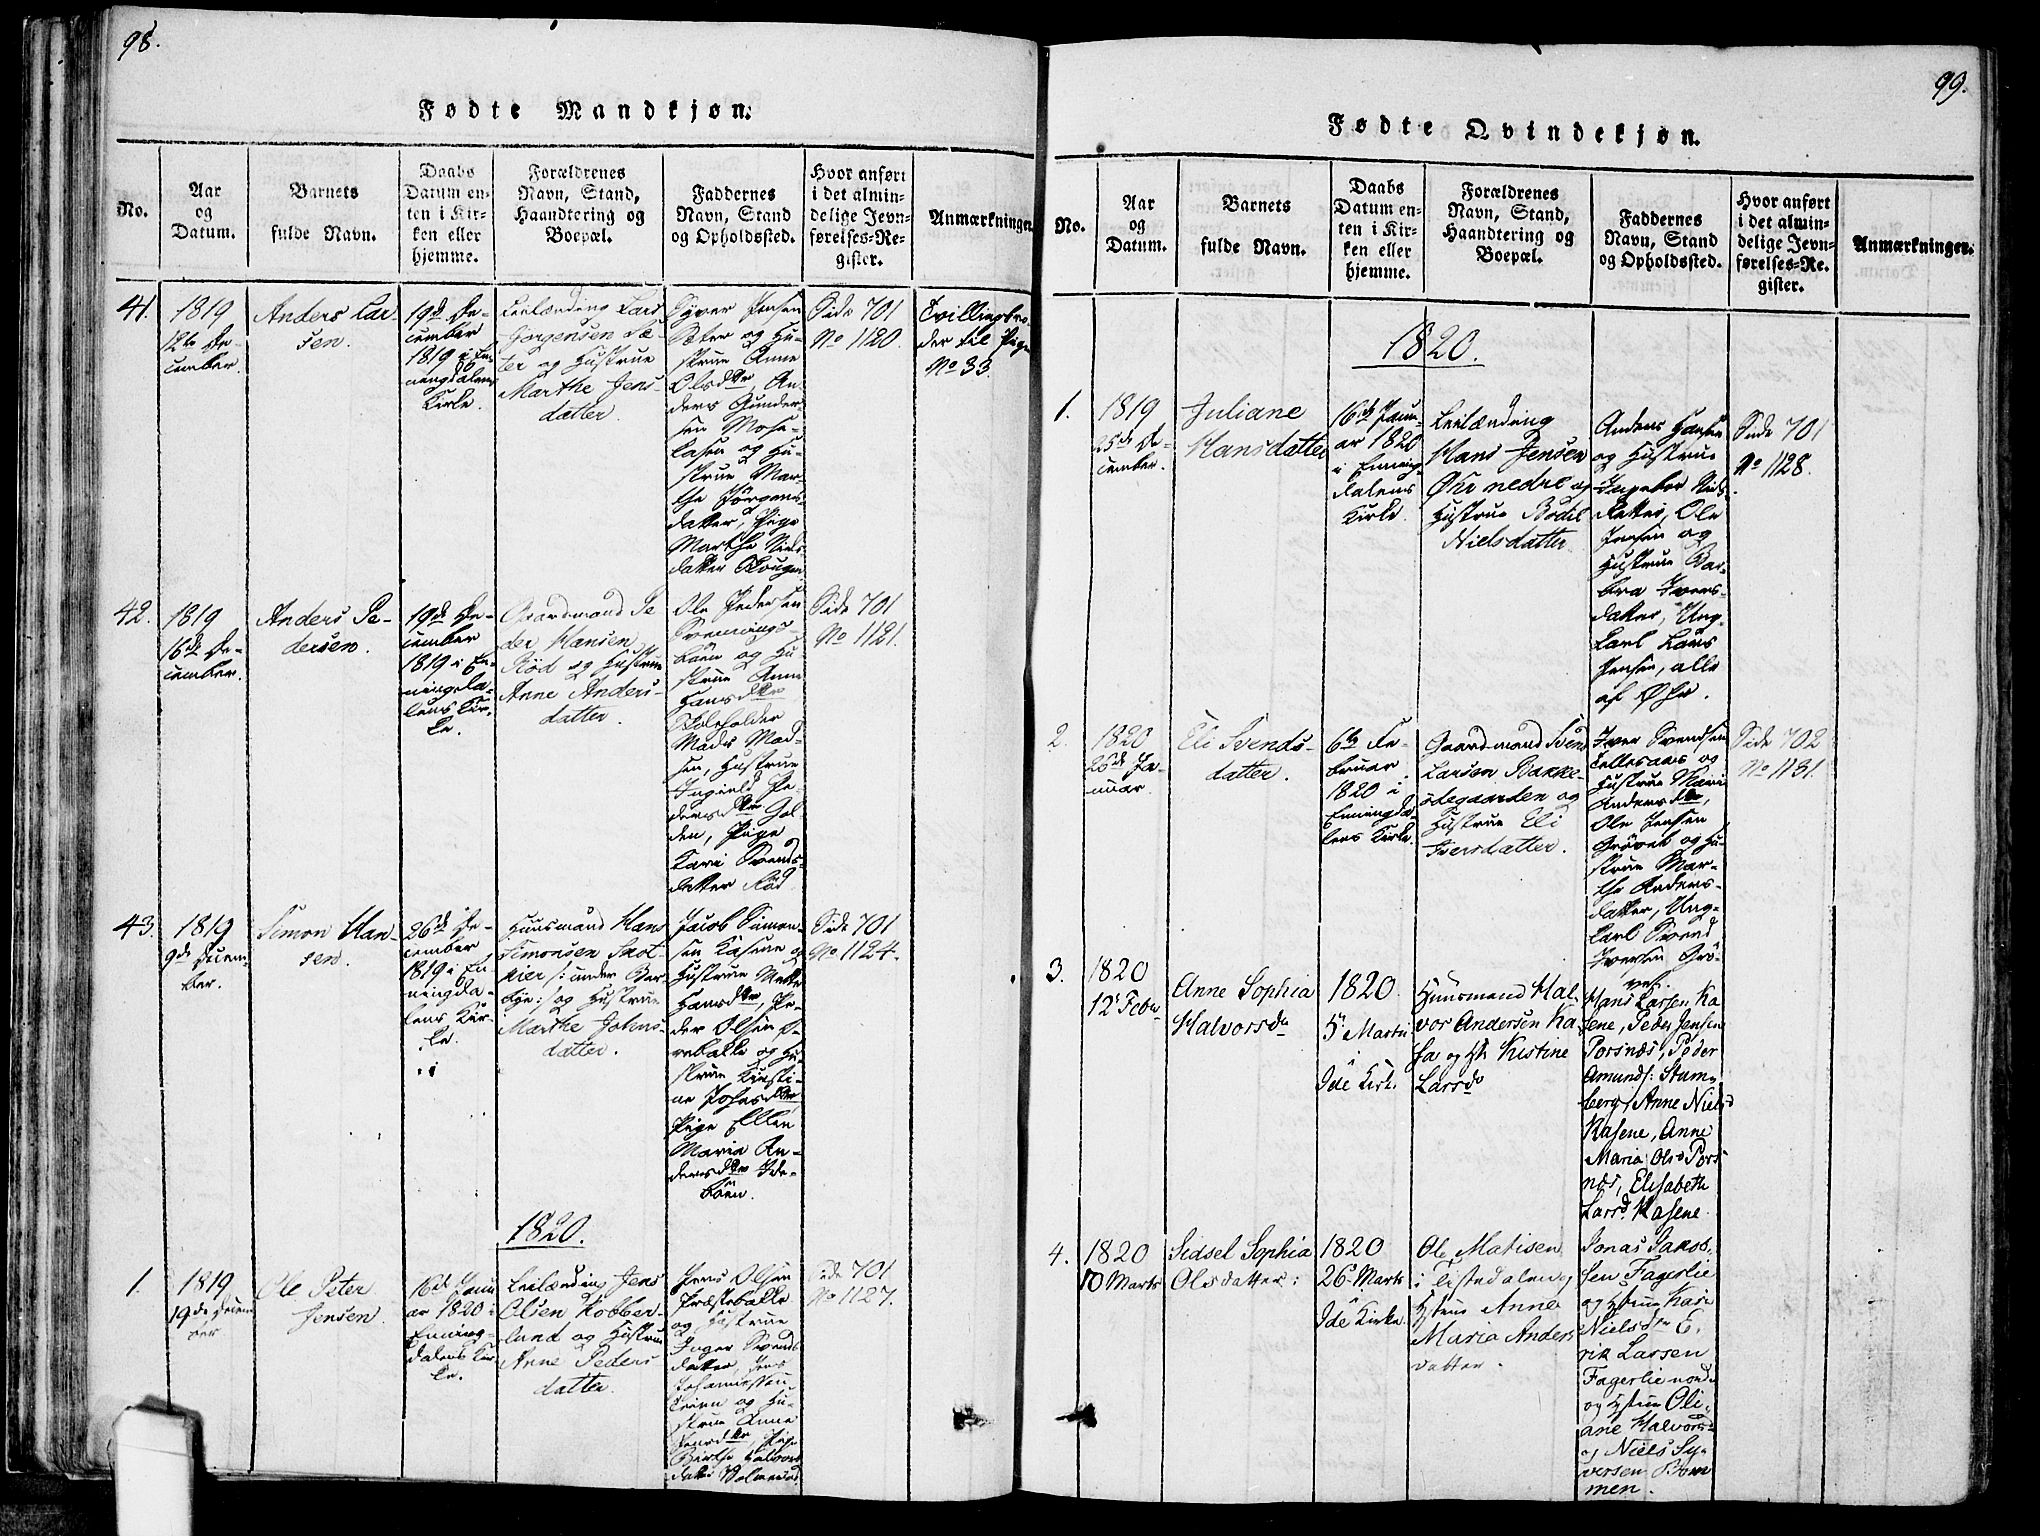 98.
Fødte Mandkjøn.
No.
Aar
og
Datum.
Barnets
fulde Navn.
Daabs
Datum en-
ten i Kir-
ken eller
hjemme.
Forældrenes
Navn, Stand,
Haandtering og
Boepæl.
Faddernes
Navn, Stand
og Opholdssted.
Hvor anført
i det almin-
delige Jevn-
førelses-Re-
gister.
Anmærkninger.
41.
1819
12te De-
cember.
Anders Lar-
sen.
19de De-
cember
1819 i En-
ningdalens
Kirke.
Leilænding Lars
Jørgensen Sæ-
ter og Hustrue
Marthe Jens-
datter.
Syver Jensen
Sæter og Hu-
strue Anne
Olsdtr, An-
ders Gunder-
sen Mose-
lasen og Hu-
strue Mar-
the Jørgens-
datter, Pige
Marthe Niels-
datter
Side 701
No 1120.
Tvillingbro-
der til Pige
No 33.
42.
1819
16de De-
cember.
Anders Pe-
dersen.
19de De-
cember
1819 i En-
ningda-
lens Kir-
ke.
Gaardmand Pe-
der Hansen
Rød og Hustrue
Anne Anders-
datter.
Ole Pedersen
Svennings-
bøen og Hu-
strue Anne
Hansdtr
Skoleholder
Mads Mad-
sen, Hustrue
Ingield Pe-
dersdtr Hol-
den, Pige
Kari Svends-
datter Rød.
Side 701
No 1121.
43.
1819
9de Decem-
ber.
Simon Han-
sen.
26de De-
cember
1819 i En-
ningda-
lens Kir-
ke.
Huusmand Hans
Simonsen Skot-
kier /: under Ber-
bye :/ og Hustrue
Marthe Johns-
datter.
Jacob Simon-
sen Kasene og
Hustrue Mette
Hansdtr, Pe-
der Olsen
og Hu-
strue Kirsti-
ne Johnsdtr
Pige Ellen
Maria An-
dersdtr Ide-
bøen.
Side 701
No 1124.
1820.
1.
1819
19de Decem-
ber
Ole Peter
Jensen.
16de Janu
ar 1820 i
Enning-
dalens Kir
ke.
Leilænding Jens
Olsen Kobber-
lund og Hustrue
Anne Peders
datter.
Jens Olsen
Præstebakke
og Hustrue
Inger Svends
datter, Jens
Johannessen
og Hu-
strue Anne
Jensdtr, Pige
Birthe Halvors
datter
Side 701
No 1127.
99.
Fødte Qvindekjøn.
No.
Aar
og
Datum.
Barnets
fulde Navn.
Daabs
Datum en-
ten i Kir-
ken eller
hjemme.
Forældrenes
Navn, Stand,
Haandtering og
Boepæl.
Faddernes
Navn, Stand
og Opholdssted.
Hvor anført
i det almin-
delige Jevn-
førelses-Re-
gister.
Anmærkninger.
1820.
1.
1819
25de De-
cember.
Juliane
Hansdatter
16de Janu-
ar 1820
i Enning-
dalens
Kirke.
Leilænding
Hans Jensen
Øhr nedre og
Hustrue Bodil
Nielsdatter.
Anders Hansen
og Hustrue
Ingebor Niels-
datter, Ole
Jensen og
Hustrue Bar-
bra Ivers-
datter, Ung-
karl Lars
Jensen, alle
af Øhr.
Side 701
No 1128.
2.
1820
26de Ja-
nuar.
Eli Svends-
datter.
6te Fe-
bruar
1820 i
Enningda-
lens Kirke.
Gaardmand Svend
Larsen Bakke-
ødegaarden og
Hustrue Eli
Iversdatter.
Iver Svendsen
Tellesaas og
Hustrue Mari
Andersdtr,
Ole Jensen
Grövet og Hu-
strue Mar-
the Anders-
datter, Ung-
karl Svend
Iversen Grö-
vet.
Side 702
No 1131.
3.
1820
12te Febr
Anne Sophia
Halvorsdr
1820
5te Marts
i
Ide Kirk.
Huusmand Hal-
vor Andersen Ka-
sa og H. Kistine
Larsdr
Hans Larsen Ka
sene, Peder Jensen
Porsnæs, Peder
Amunds: Stum-
berg, Anne Nielsd
Kasene, Anne
Maria Olsd Pors
næs, Elisabeth
Larsd. Kasene.
4.
1820
10 Marts
Sidsel Sophia
Olsdatter:
1820
26 Marts
i
Ide Kirke
Ole Matisen
i Tistedalen og
Hstrue Anne
Maria Anders
datter.
Jonas Jakob-
sen Fagerlie
og Hstrue Kari
Nielsdtr E-
rik Larsen
Fagerlie nord-
og Hstrue Oli-
ane Halvorsd
og Niels Sy-
versen Bom-
men.